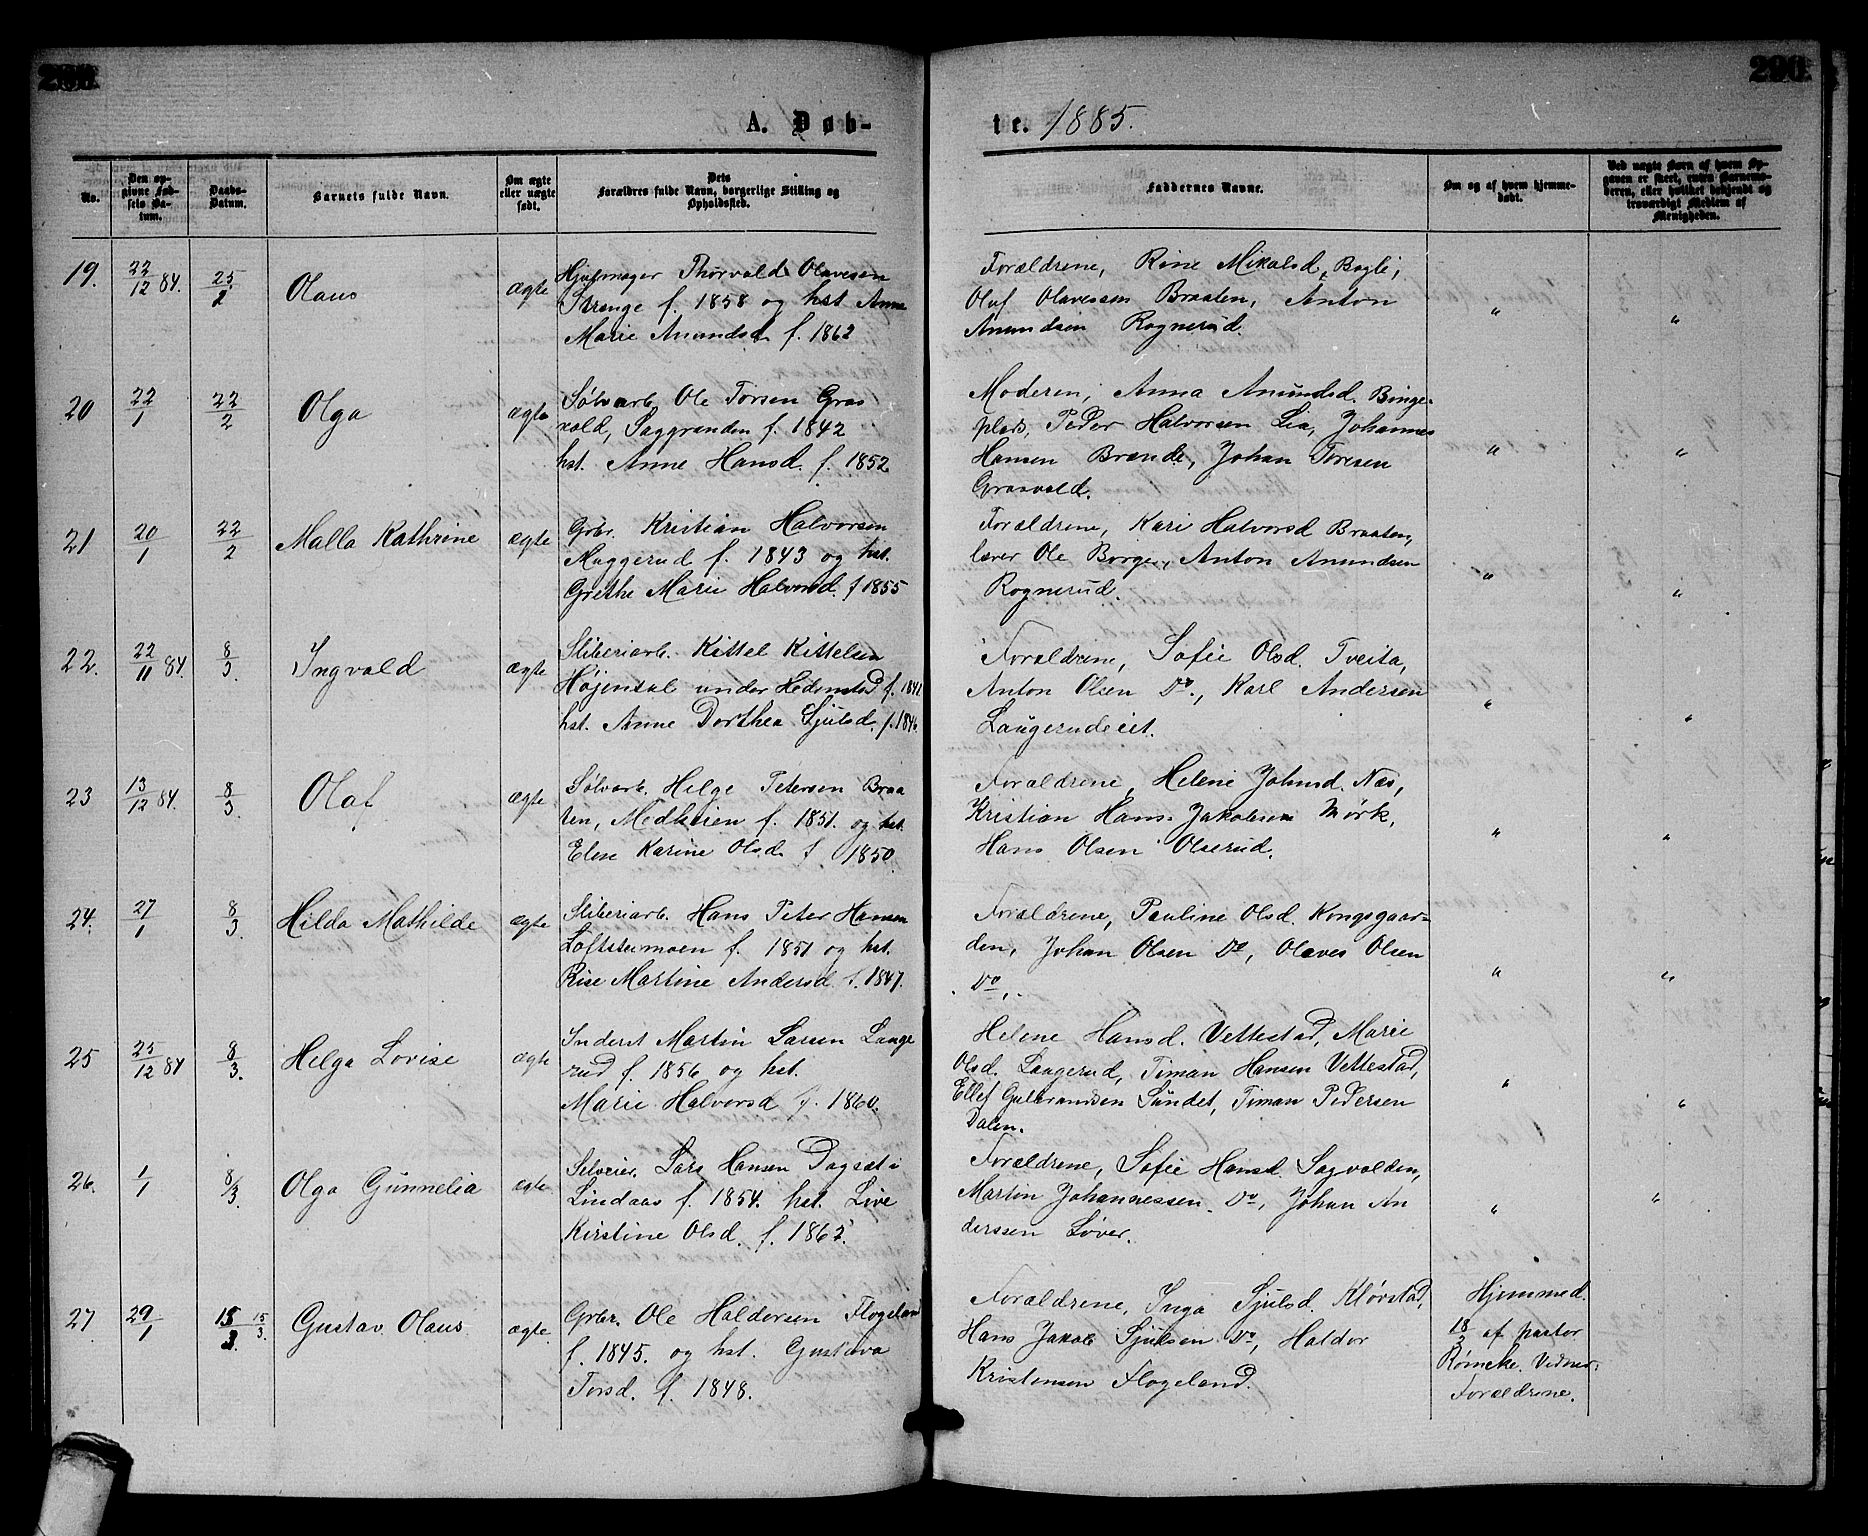 290.
A. Døb-
te. 1885.
No.
Den op-
givne Fød-
sels Da-
tum.
Daabs-
Datum.
Barnets fulde Navn.
Om ægte
eller uægte
født.
Dets
Forældres fulde Navn, borgerlige Stilling og
Opholdssted.
Faddernes Navne.
Om og af hvem hjemme-
døbt.
Ved uægte Børn af hvem Op-
gaven er skeet, enten Barnemo-
deren, eller hvilket bekjendt og
troværdigt Medlem af
Menigheden.
19. 22/12 84. 25/2 Olaus ægte
Hjulmager Thorvald Olavesen
Strenge f. 1858 og hst Anne
Marie Amundsd f. 1862
Forældrene, Rine Mikalsd, Bøgli,
Oluf Olavessen Braaten, Anton
Amundsen Rognerud.
" "
20 22/1 22/2 Olga ægte
Sølvarb. Ole Torsen Gras
vold, Saggrenden f. 1842
hst. Anne Hansd. f. 1852
Moderen, Anna Amundsd. Binge-
plads, Peder Halvorsen Lia, Johannes
Hansen Brænde, Johan Toresen
Grasvold.
" "
21 20/1 22/2 Malla Kathrine ægte
Grbr. Kristian Halvorsen
Muggerud f. 1843 og hst.
Grethe Marie Halvorsd. f 1855
Forældrene, Kari Halvorsd Braaten,
lærer Ole Borge, Anton Amundsen
Rognerud.
" "
22. 22/11 84. 8/3. Ingvald ægte
Sliberiarb. Kittel Kittelsen
Højensal under Hedenstad f. 1841
hst. Anne Dorthea Sjulsd. f. 1846.
Forældrene, Sofie Olsd. Tveita,
Anton Olsen Do., Karl Andersen
Laugerudeiet.
" "
23 13/12 84. 8/3. Olaf ægte
Sølvarb. Helge Petersen Braa
ten, Medheien f. 1851. og hst.
Elene Karine Olsd f. 1850.
Forældrene, Helene Johnsd. Næs,
Kristian Hans. Jakobsen Mørk,
Hans Olsen Olserud.
" "
24. 27/1 8/3. Hilda Mathilde ægte
Sliberiarb. Hans Peter Hansen
Loftstumoen f. 1851 og hst.
Rise Martine Andersd f. 1847.
Forældrene, Pauline Olsd. Kongsgaar-
den, Johan Olsen Do, Olaves Olsen
Do.
" "
25 25/12 84 8/3. Helga Lovise ægte
Inderst Martin Larsen Lauge
rud f. 1856 og hst.
Marie Halvorsd f. 1860.
Helene Hansd. Vettestad, Marie
Olsd. Laugerud, Timan Hansen Vettestad,
Ellef Gulbrandsen Sundet, Timan Pedersen
Dalen.
" "
26. 1/1 8/3. Olga Gunnelia ægte
Selveier. Lars Hansen Dagsæt i
Lindaas f. 1854. hst. Live
Kirstine Olsd. f. 1862.
Forældrene, Sofie Hansd. Sagvolden,
Martin Johannessen. Do, Johan An
derssen Løver.
" "
27. 29/1 15/3. 15/3. Gustav Olaus ægte.
Grbr. Ole Haldorsen Flogeland
f. 1845. og hst. Gustava
Torsd. f. 1848.
Forældrene, Inga Sjulsd. Kløvstad,
Hans Jakob Sjulsen Do, Haldor
Kristensen Flogeland.
Hjemmed.
18/2 af pastor
Rømcke. Vidner:
Forældrene.